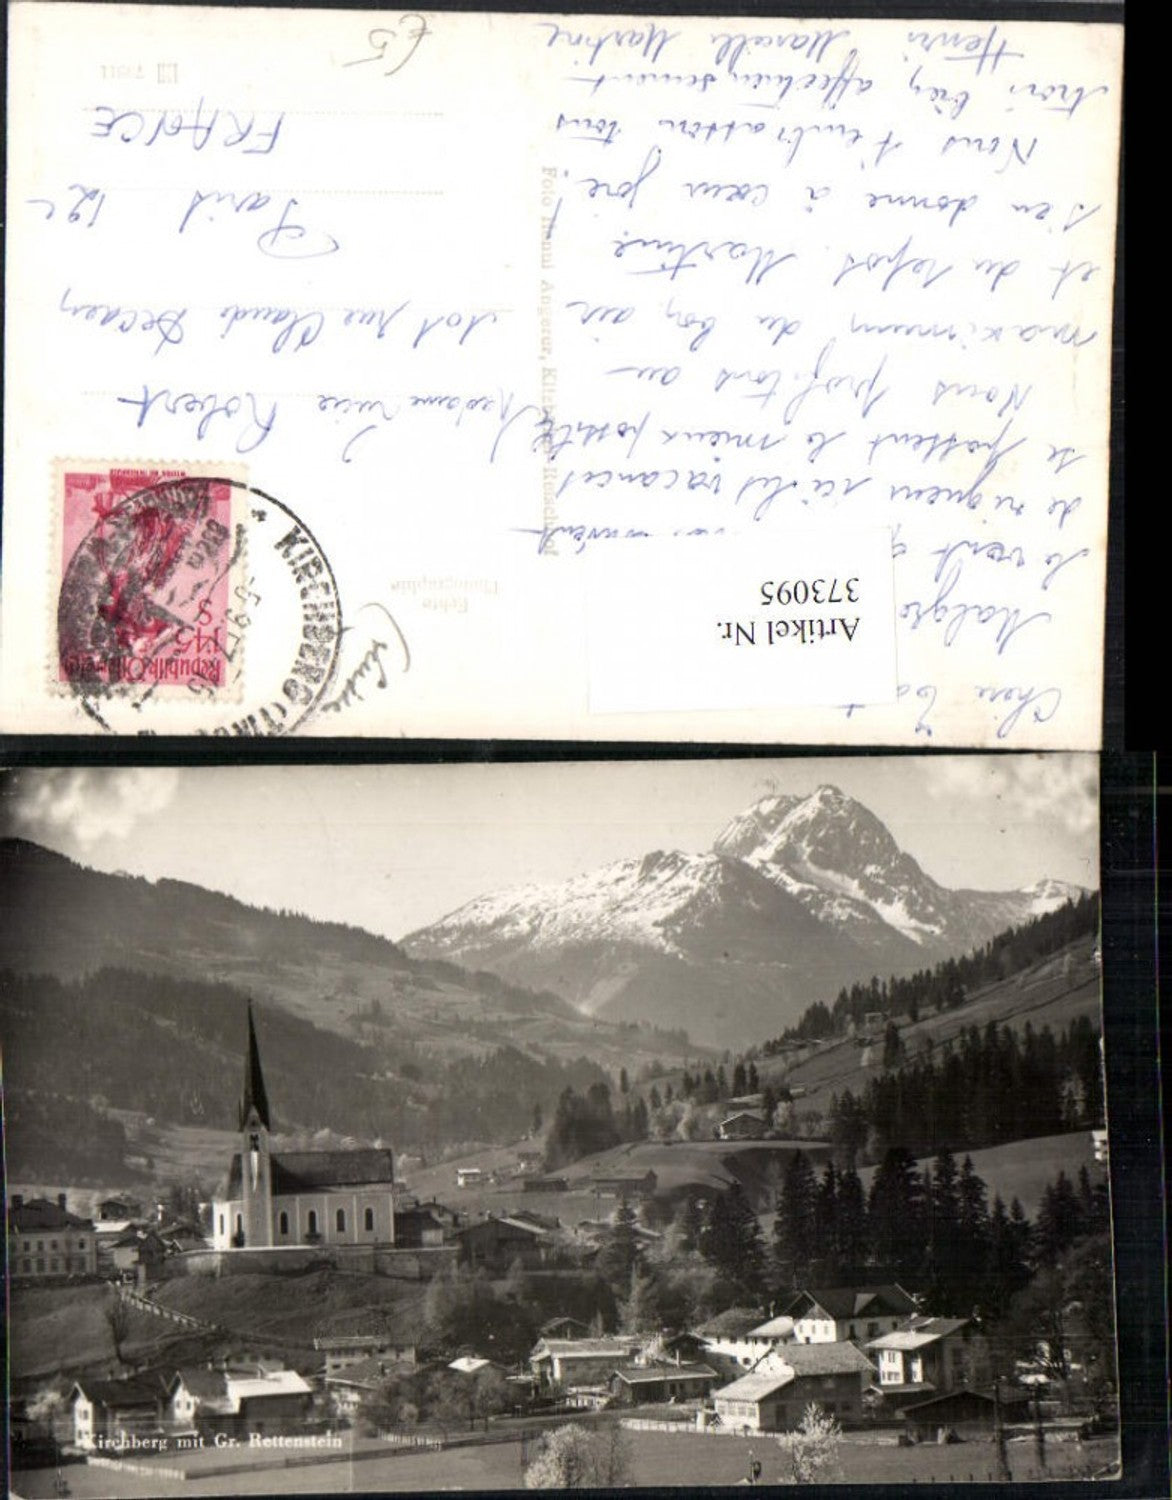 Chère
Malgré
le vent
de rigueur ici les vacances
se passent le mieux possible
Nous profitons au
maximum du bon air
et du repos. Martine
s'en donne à cœur joie!
Nous t'embrassons tous
trois bien affectueusement
Henri Marcelle Martine
Artikel Nr.
373095
Echte
Photographie
Foto Hanni Angerer, Kitzbühel
Republik Österreich
1.45
S
KIRCHBERG (TIROL)
Madame
Robert
101 rue Claude Decaen
Paris 12e
FRANCE
€5
Kirchberg mit Gr. Rettenstein